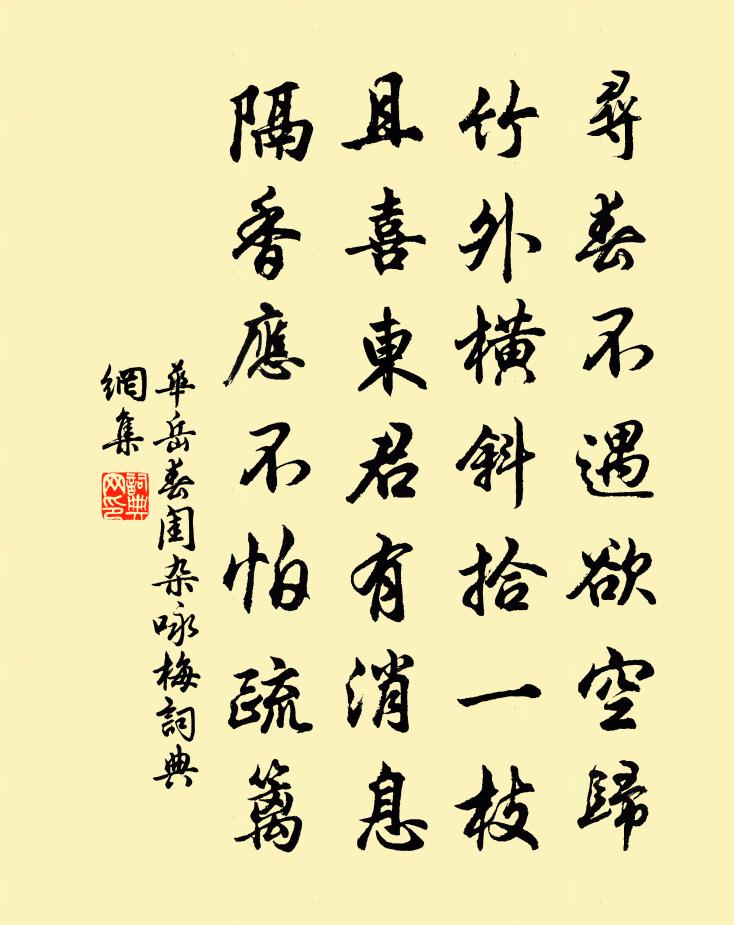 尋春不遇欲空歸
竹外橫斜拾一枝
且喜東君有消息
隔香應不怕疏篱
華岳春闺杂咏梅詞典
網集
詞典
网印